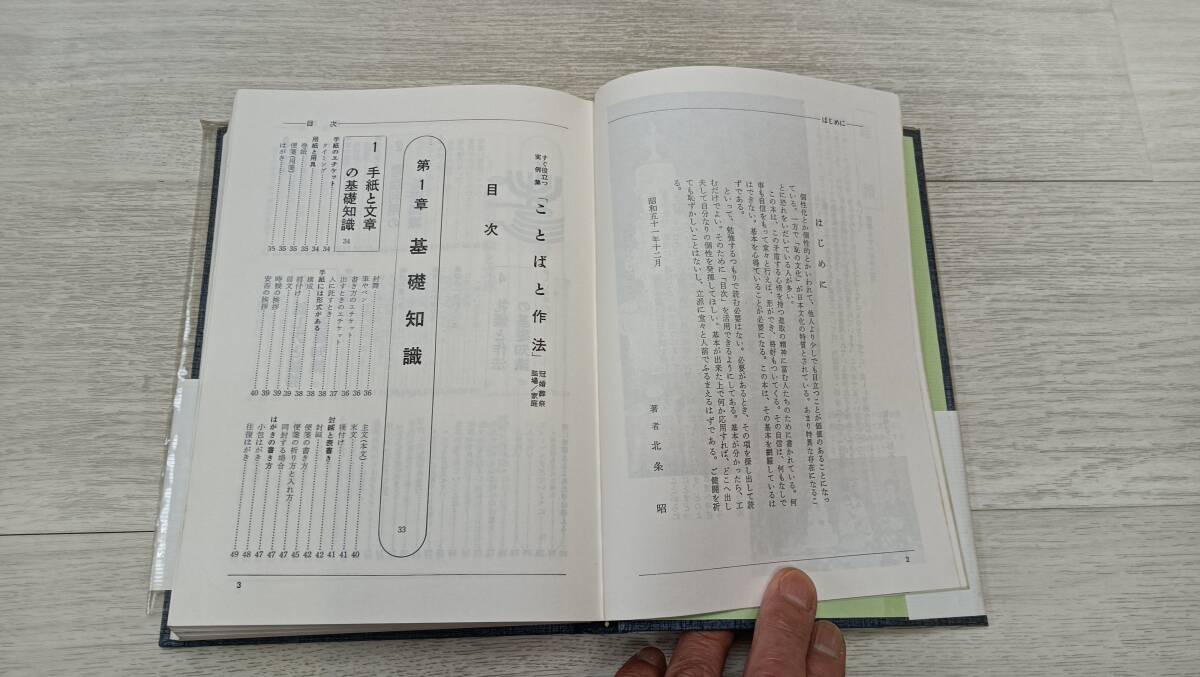 はじめに
はじめに
個性化とか個性的とかいわれて、他人より少しでも目立つことが価値のあることになっ
ている。一方で「恥の文化」が日本文化の特質とされている。あまり特異な存在になるこ
とに恐れをいだいている人が多い。
この本は、この矛盾する心情を持つ進取の精神に富む人たちのために書かれている。何
事も自信をもって堂々と行えば、形ができ、格好もついてくる。その自信は、何もなしで
はできない。基本を心得ていることが必要になる。この本は、その基本を網羅しているは
ずである。
といって、勉強するつもりで読む必要はない。必要があるとき、その項を探し出して読
むだけでよい。そのために「目次」を活用できるようにしてある。基本が分かったら、工
夫して自分なりの個性を発揮してほしい。基本が出来た上で何か応用すれば、どこへ出し
ても恥ずかしいことはないし、立派に堂々と人前でふるまえるはずである。ご健闘を祈
る。
昭和五十一年十二月
著者 北条 昭
2
目 次
すぐ役立つ
実例集
「ことばと作法」
冠婚葬祭
職場/家庭
目次
第1章 基礎知識
33
1 手紙と文章
の基礎知識
34
手紙のエチケット……34
タイミング……34
用紙と用具……35
巻紙……35
便箋(用箋)……35
はがき……35
封筒……36
筆やペン……36
書き方のエチケット……36
出すときのエチケット……37
人に託すとき……38
手紙には形式がある……38
構成……38
前付け……38
前文……39
時候の挨拶……39
安否の挨拶……40
主文(本文)……40
末文……41
後付け……41
封緘と表書き……42
封緘……42
便箋の書き方……45
便箋の折り方と入れ方……47
同封する場合……47
はがきの書き方……47
小包はがき……48
往復はがき……49
3